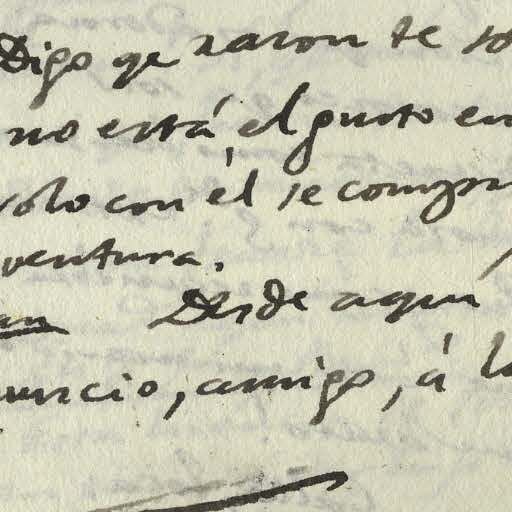 Digo qe razon te so
no está el gusto en
solo con él se compr
ventura.
an Desde aqui
uncio, amigo, á lo